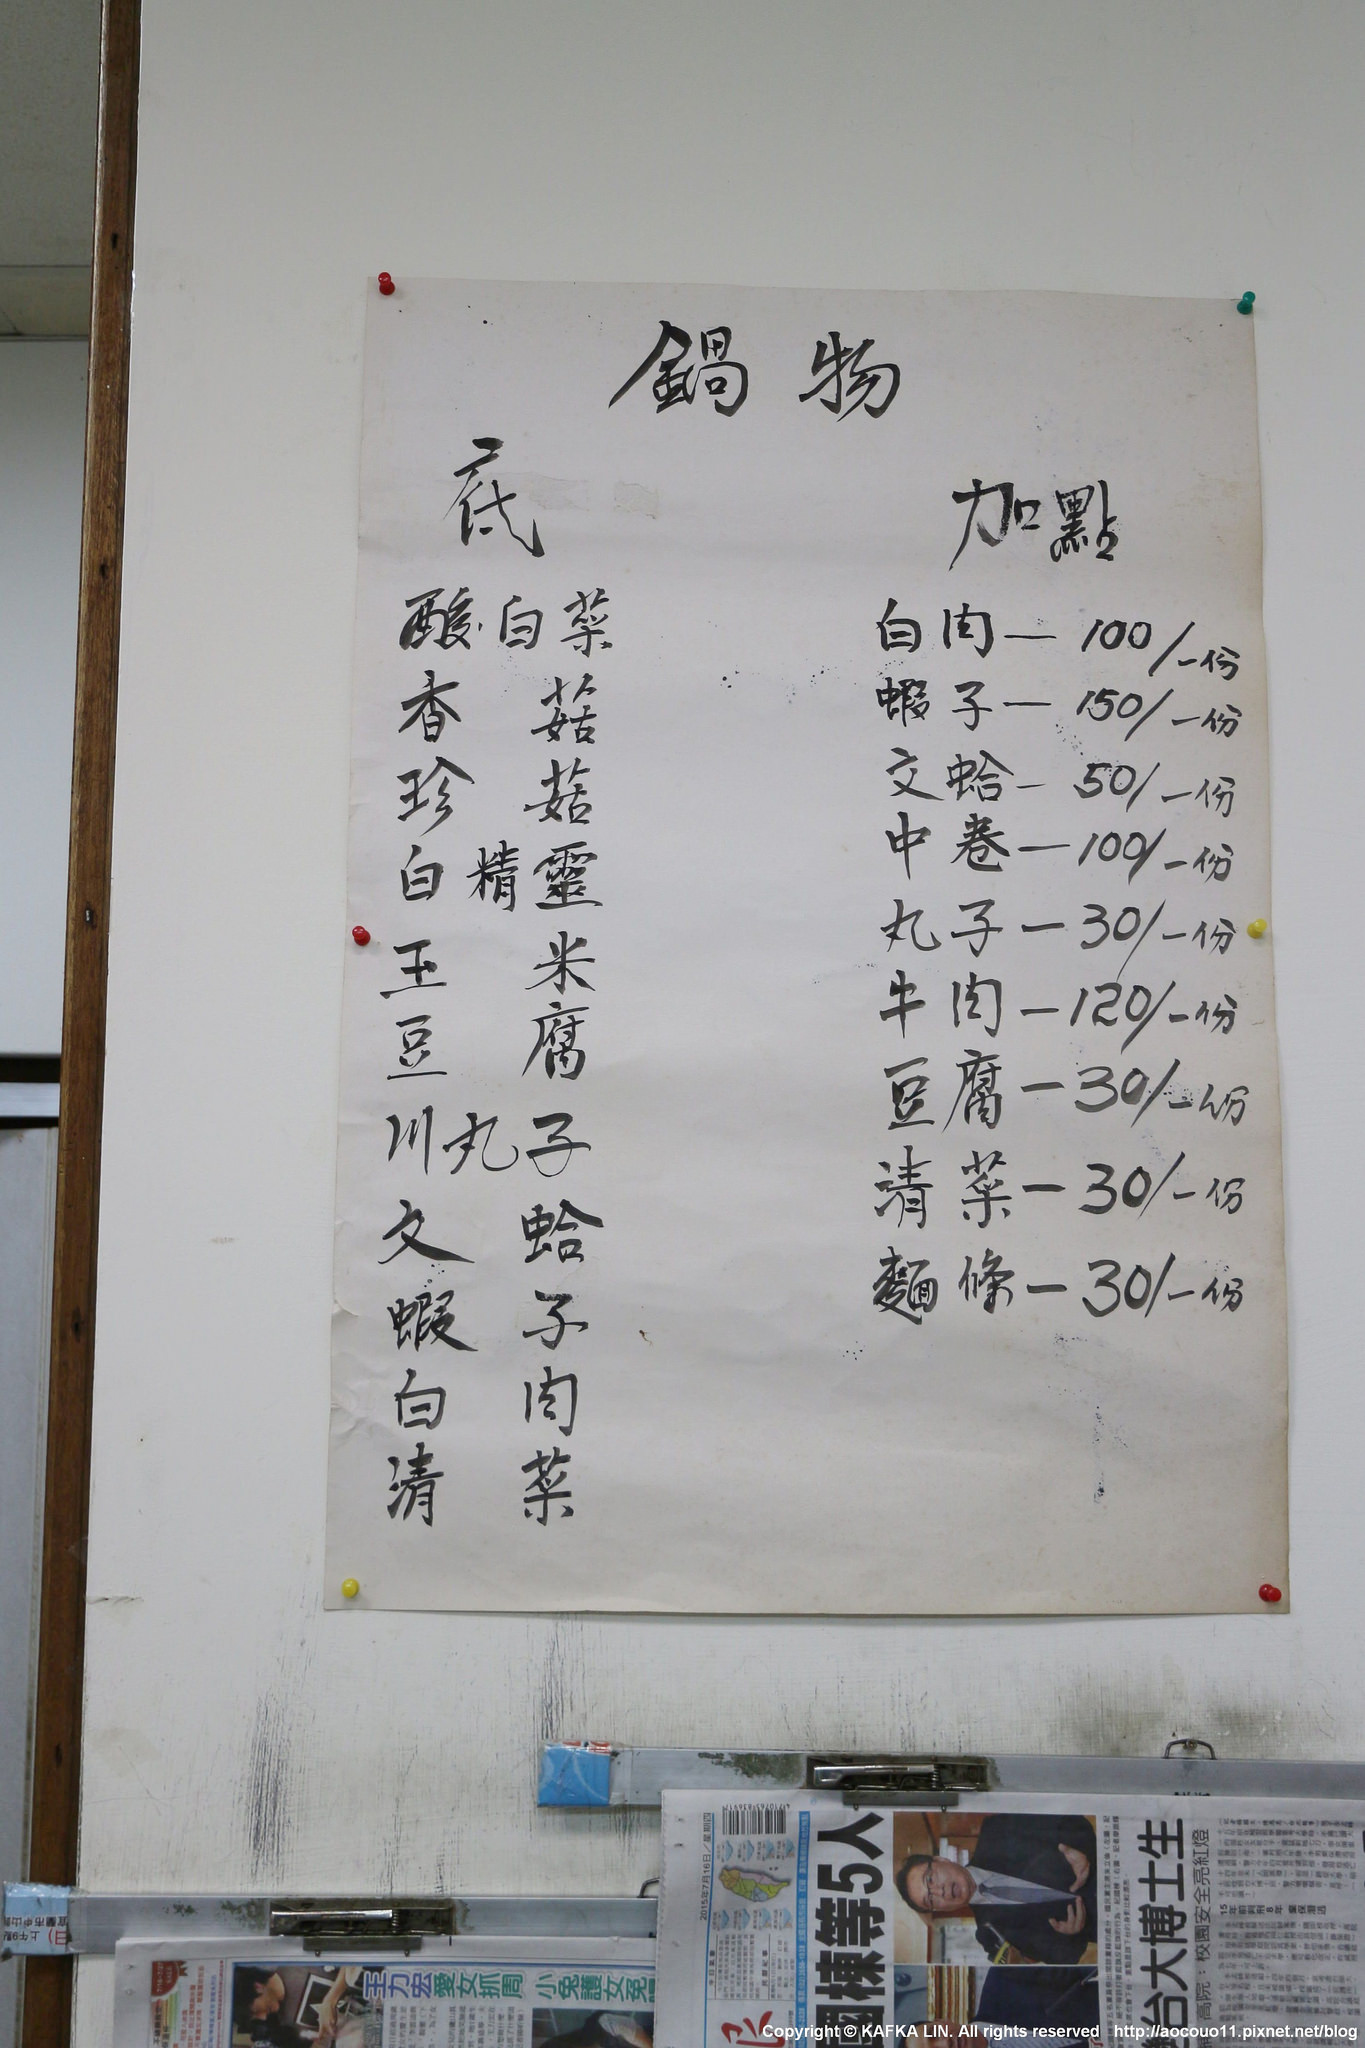 鍋物
底
酸白菜
香菇
珍菇
白精靈
玉米
豆腐
川丸子
文蛤
蝦子
白肉
清菜
加點
白肉—100/一份
蝦子—150/一份
文蛤—50/一份
中卷—100/一份
丸子—30/一份
牛肉—120/一份
豆腐—30/一份
清菜—30/一份
麵條—30/一份
王力宏愛女抓周 小兔護女冤
2015年7月16日／星期四
國棟等5人
台大博士生
高院：校園安全亮紅燈
Copyright © KAFKA LIN. All rights reserved http://aocouo11.pixnet.net/blog